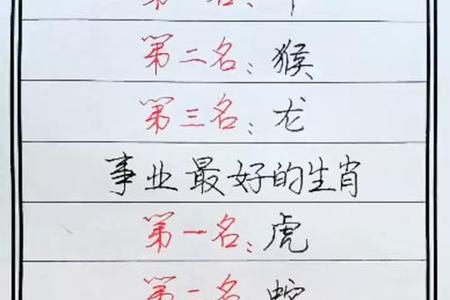 第二名：猴
第三名：龙
事业最好的生肖
第一名：虎
第二名：蛇